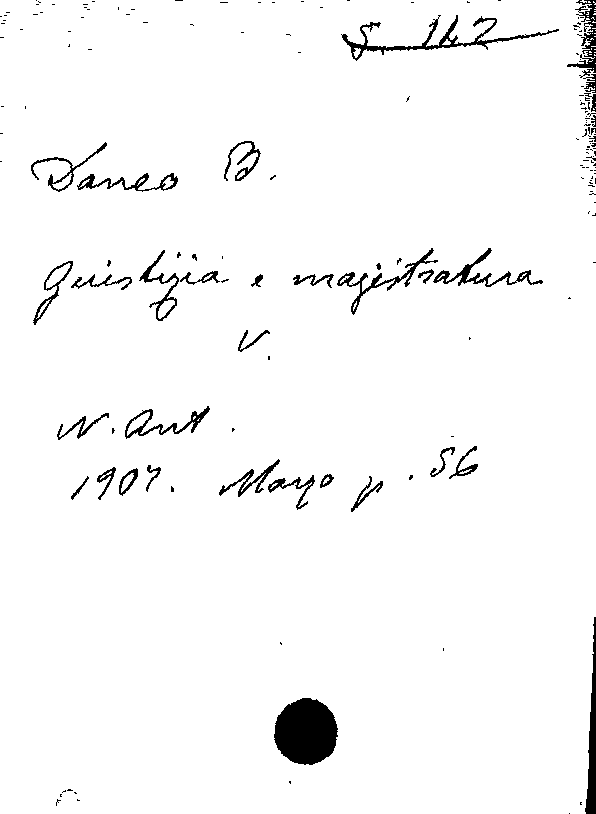 S. 142
Daneo B.
Giustizia e magistratura
V.
N. Ant.
1907. Marzo p. 56